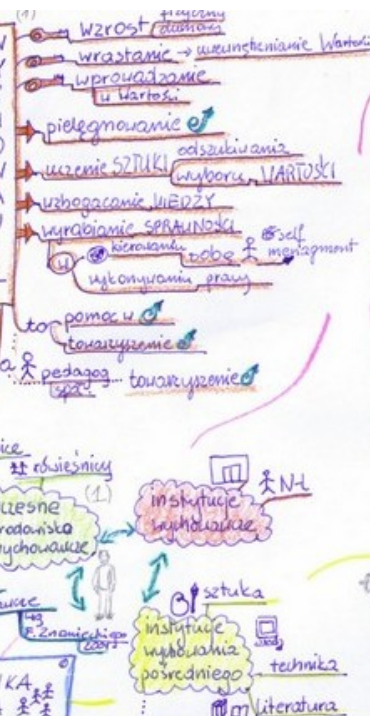 (1)
wzrost fizyczny
duchowy
wrastanie → uwewnętrznianie Wartości
wprowadzanie
w Wartości
pielęgnowanie
uczenie SZTUKI odszukiwania
wyboru WARTOŚCI
wzbogacanie WIEDZY
wyrabianie SPRAWNOŚCI
w kierowaniu sobą self
menagment
wykonywaniu pracy
to pomoc w
towarzyszenie
pedagog towarzyszenie
społ.
rówieśnicy
(1.)
instytucje
wychowawcze
N-l
sztuka
wg
F. Znanieckiego
instytucje
wychowania
pośredniego
technika
Literatura